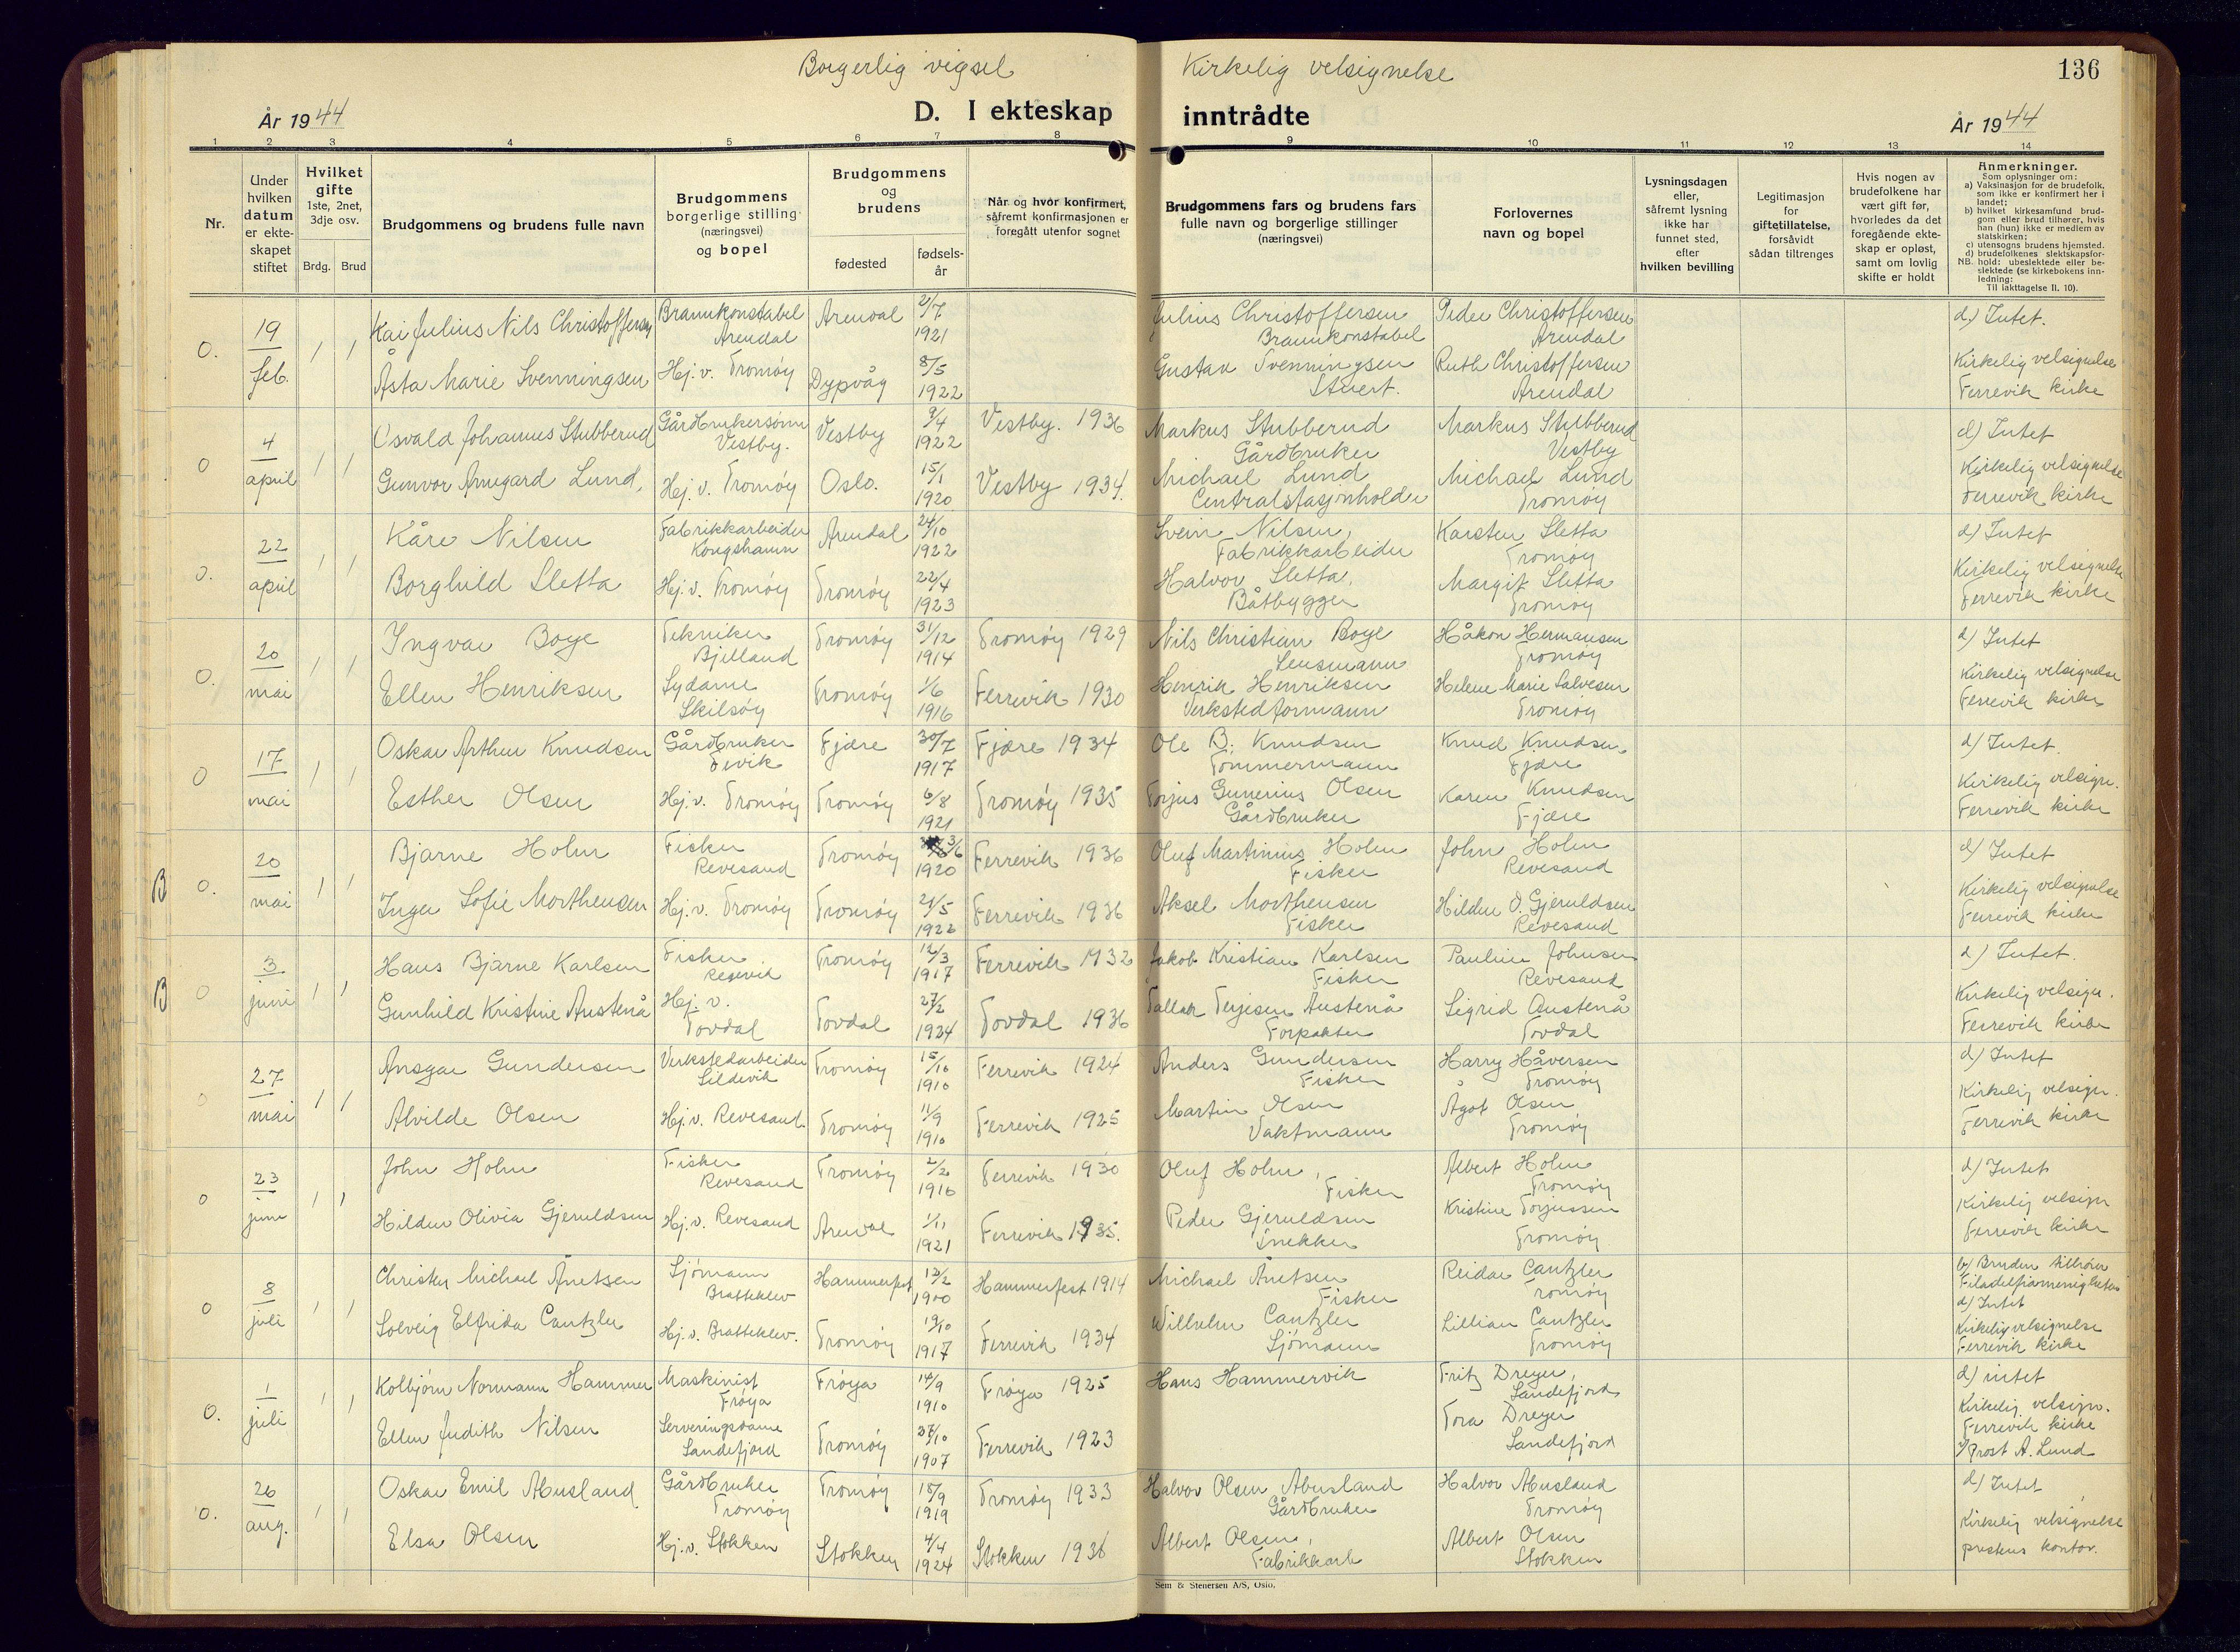 Borgerlig vigsel
Kirkelig velsignelse
136
År 1944
D. I ekteskap inntrådte
År 1944
1 2 3 4 5 6 7 8 9 10 11 12 13 14
Nr.
Under hvilken datum er ekteskapet stiftet
Hvilket gifte 1ste, 2net, 3dje osv.
Brdg. Brud
Brudgommens og brudens fulle navn
Brudgommens borgerlige stilling (næringsvei) og bopel
Brudgommens og brudens
fødested
fødselsår
Når og hvor konfirmert, såfremt konfirmasjonen er foregått utenfor sognet
Brudgommens fars og brudens fars fulle navn og borgerlige stillinger (næringsvei)
Forlovernes navn og bopel
Lysningsdagen eller, såfremt lysning ikke har funnet sted, efter hvilken bevilling
Legitimasjon for giftetillatelse, forsåvidt sådan tiltrenges
Hvis nogen av brudefolkene har vært gift før, hvorledes da det foregående ekteskap er opløst, samt om lovlig skifte er holdt
Anmerkninger.
Som oplysninger om:
a) Vaksinasjon for de brudefolk, som ikke er konfirmert her i landet;
b) hvilket kirkesamfund brudgom eller brud tilhører, hvis han (hun) ikke er medlem av statskirken;
c) utensogns brudens hjemsted.
d) brudefolkenes slektskapsforhold: ubeslektede eller beslektede (se kirkebokens innledning:
NB.
Til iakttagelse II. 10).
0. 19 feb. 1 1 Kai Julius Nils Christoffersen Brannkonstabel Arendal Arendal 2/7 1921 Julius Christoffersen Brannkonstabel Peder Christoffersen Arendal d.) Intet.
Åsta Marie Svenningsen Hj.v. Tromøy Dypvåg 8/5 1922 Gustav Svenningsen Stuert. Ruth Christoffersen Arendal Kirkelig velsignelse Færevik kirke
0 4 april 1 1 Osvald Johannes Stubberud Gårdbrukersønn Vestby. Vestby 9/4 1922 Vestby. 1936 Markus Stubberud Gårdbruker Markus Stubberud Vestby d) Intet
Gunvor Armgard Lund, Hj.v. Tromøy Oslo. 15/1 1920 Vestby 1934. Michael Lund Centralstasjonholder Michael Lund Tromøy Kirkelig velsignelse Færevik kirke
0. 22 april 1 1 Kåre Nilsen Fabrikkarbeider Kongshamn Arendal 24/10 1922 Svein Nilsen, Fabrikkarbeider Karsten Sletta Tromøy d) Intet
Borghild Sletta Hj.v. Tromøy Tromøy 22/4 1923 Halvor Sletta, Båtbygger Margit Sletta Tromøy Kirkelig velsignelse Færevik kirke
0. 20 mai 1 1 Ingvar Boye Tekniker Bjelland Tromøy 31/12 1914 Tromøy 1929 Nils Christian Boye Lensmann Håkon Hermansen Tromøy d) Intet
Ellen Henriksen Sydame Skilsøy Tromøy 1/6 1916 Færevik 1930 Henrik Henriksen Verkstedformann Helene Marie Salvesen Tromøy Kirkelig velsignelse Færevik kirke
0 17 mai 1 1 Oskar Arthur Knudsen Gårdbruker Fevik Fjære 30/7 1917 Fjære 1934 Ole B. Knudsen Tømmermann Knud Knudsen Fjære d) Intet.
Esther Olsen Hj.v. Tromøy Tromøy 6/8 1921 Tromøy 1935 Torjus Gunerius Olsen Gårdbruker Karen Knudsen Fjære Kirkelig velsign. Færevik kirke
B 0. 20 mai 1 1 Bjarne Holm Fisker Revesand Tromøy 3/6 1920 Færevik 1936 Oluf Martinius Holm Fisker John Holm Revesand d) Intet
Inger Sofie Morthensen Hj.v. Tromøy Tromøy 21/5 1922 Færevik 1936 Aksel Morthensen Fisker Hildur O. Gjeruldsen Revesand Kirkelig velsignelse Færevik kirke
B 0 3 juni 1 1 Hans Bjarne Karlsen Fisker Tromøy 12/3 1917 Færevik 1932 Jakob Kristian Karlsen Fisker Pauline Johnsen Revesand d) Intet.
Gunhild Kristine Austenå Hj.v. Tovdal Tovdal 27/2 Tovdal 1936 Tallak Terjesen Austenå Forpakter Sigrid Austenå Tovdal Kirkelig velsign. Færevik kirke
0 27 mai 1 1 Ansgar Gundersen Verkstedarbeider Sildevik Tromøy 15/10 1910 Færevik 1924 Anders Gundersen Fisker Harry Håversen Tromøy d) Intet
Alvilde Olsen Hj.v. Revesand Tromøy 11/9 1910 Færevik 1925 Martin Olsen Vaktmann Ågot Olsen Tromøy Kirkelig velsign. Færevik kirke
0 23 juni 1 1 John Holm Fisker Revesand Tromøy 2/2 1916 Færevik 1930 Oluf Holm, Fisker Albert Holm Tromøy d) Intet
Hildur Olivia Gjeruldsen Hj.v. Revesand Arendal 1/11 1921 Færevik 1935. Peder Gjeruldsen Snekker Kristine Torjussen Tromøy Kirkelig velsign Færevik kirke
0 8 juli 1 1 Christen Michael Anetsen Sjømann Bratteklev Hammerfest 13/2 1900 Hammerfest 1914 Michael Anetsen Fisker Reidar Cantzler Tromøy b) Bruden tilhører Filadelfiamenigheten d) Intet
Solveig Elfrida Cantzler Hj.v. Bratteklev. Tromøy 19/10 1917 Færevik 1934 Wilhelm Cantzler Sjømann Lillian Cantzler Tromøy Kirkelig velsignelse Færevik kirke
0. 1 juli 1 1 Kolbjørn Normann Hammer Maskinist Frøya Frøya 14/9 1910 Frøya 1925 Hans Hammervik Fritz Dreyer, Sandefjord d) intet
Ellen Judith Nilsen Serveringsdame Sandefjord Tromøy 27/10 1907 Færevik 1923 Tora Dreyer Sandefjord Kirkelig velsign. Færevik kirke v/Prost A. Lund
0. 26 aug. 1 1 Oskar Emil Abusland Gårdbruker Tromøy Tromøy 15/9 1919 Tromøy 1933 Halvor Olsen Abusland Gårdbruker Halvor Abusland Tromøy d) Intet
Elsa Olsen Hj.v. Stokken Stokken 4/4 1924 Stokken 1936 Albert Olsen, Fabrikkarb Albert Olsen Stokken Kirkelig velsignelse prestens kontor.
Sem & Stenersen A/S, Oslo.